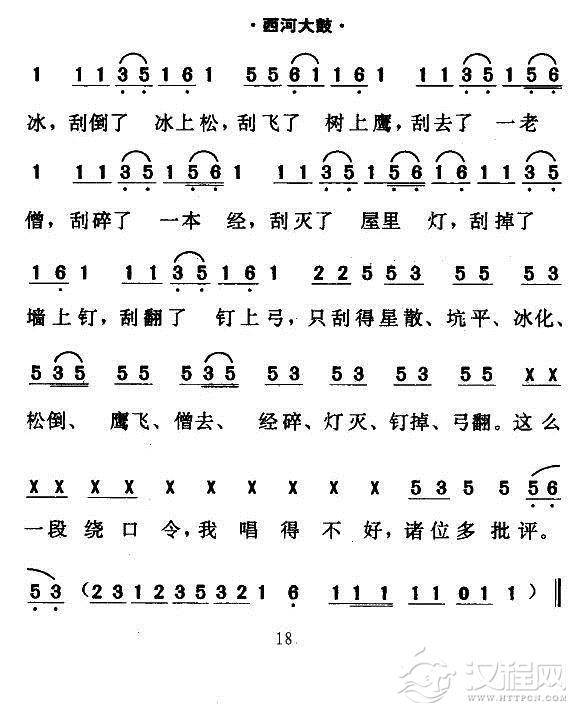 ·西河大鼓·
1 1135161 5561161 1135156
冰,刮倒了 冰上松,刮飞了 树上鹰,刮去了 一老
1 1135156 1 1135156 1 1135
僧,刮碎了 一本 经,刮灭了 屋里 灯,刮掉了
161 1135161 22553 53 55 53
墙上钉,刮翻了 钉上弓,只刮得星散、坑平、冰化、
535 55 535 53 53 53 53 X X
松倒、 鹰飞、僧去、 经碎、灯灭、钉掉、弓翻。这么
X X X X X X X X X X 53 55 56
一段绕口令,我唱得不好,诸位多批评。
53(231235321 6 111 11011)
18
汉程网
HTTPCN.COM